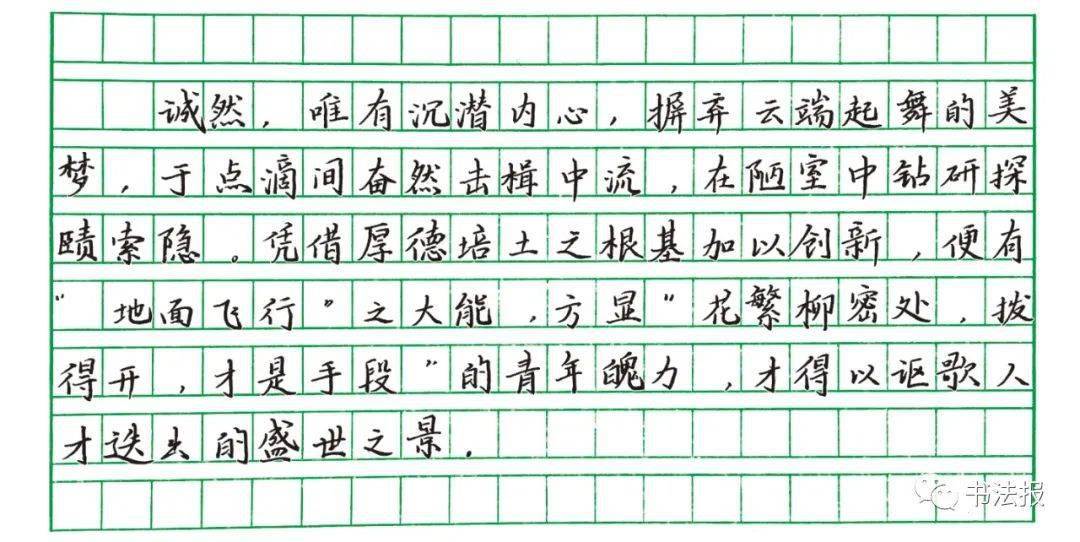 诚然，唯有沉潜内心，摒弃云端起舞的美
梦，于点滴间奋然击楫中流，在陋室中钻研探
赜索隐。凭借厚德培土之根基加以创新，便有
“地面飞行”之大能，方显“花繁柳密处，拨
得开，才是手段”的青年魄力，才得以讴歌人
才迭出的盛世之景．
书法报